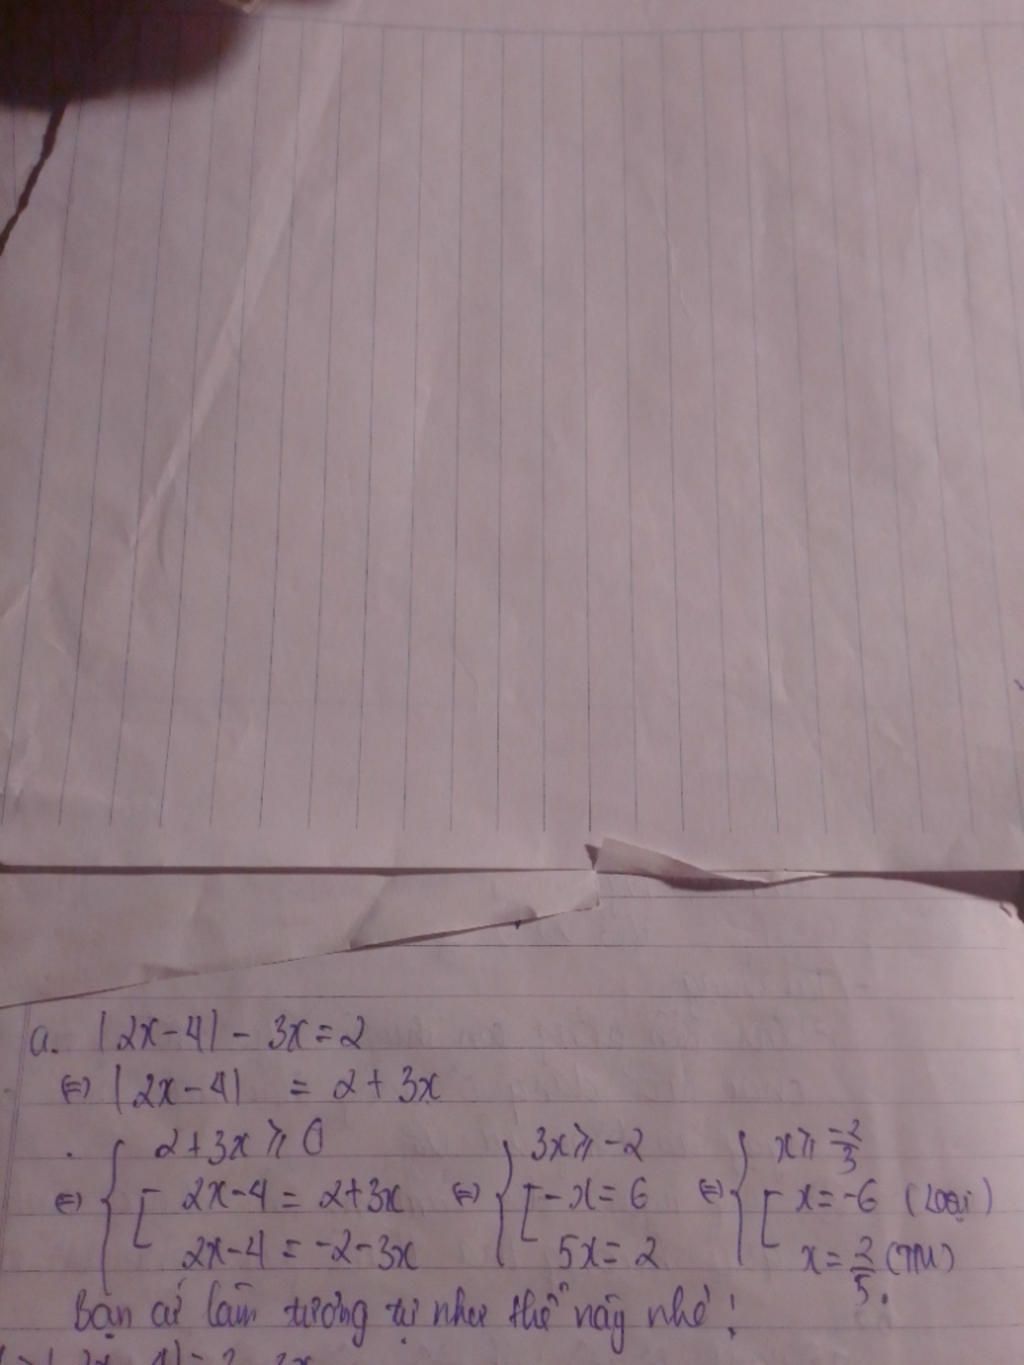 a. |2x-4| - 3x = 2
⇔ |2x-4| = 2 + 3x
⇔ { 2+3x ⩾ 0 [ 2x-4 = 2+3x 2x-4 = -2-3x ⇔ { 3x ⩾ -2 [ -x = 6 5x = 2 ⇔ { x ⩾ -2/3 [ x = -6 (Loại) x = 2/5 (TM).
Bạn cứ làm tương tự như thế này nhé!